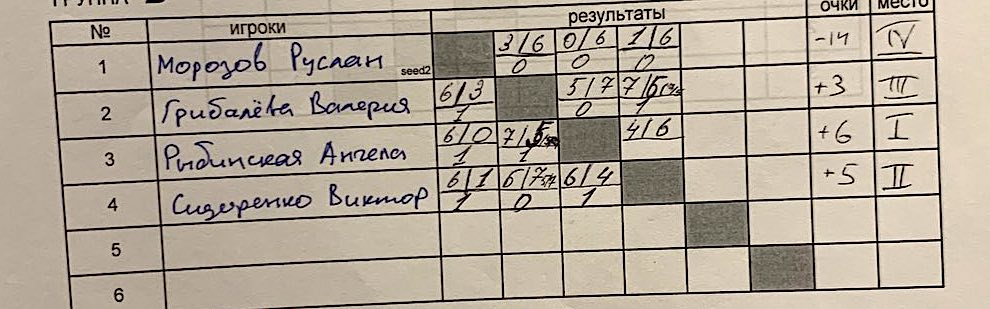 № игроки результаты очки место
1 Морозов Руслан seed2 3/6 0/6 1/6 -14 IV
0 0 0
2 Грибалёва Валерия 6/3 5/7 7/6 +3 III
1 0 1
3 Рыбинская Ангела 6/0 7/5 4/6 +6 I
1 1
4 Сидоренко Виктор 6/1 6/7 6/4 +5 II
1 0 1
5
6